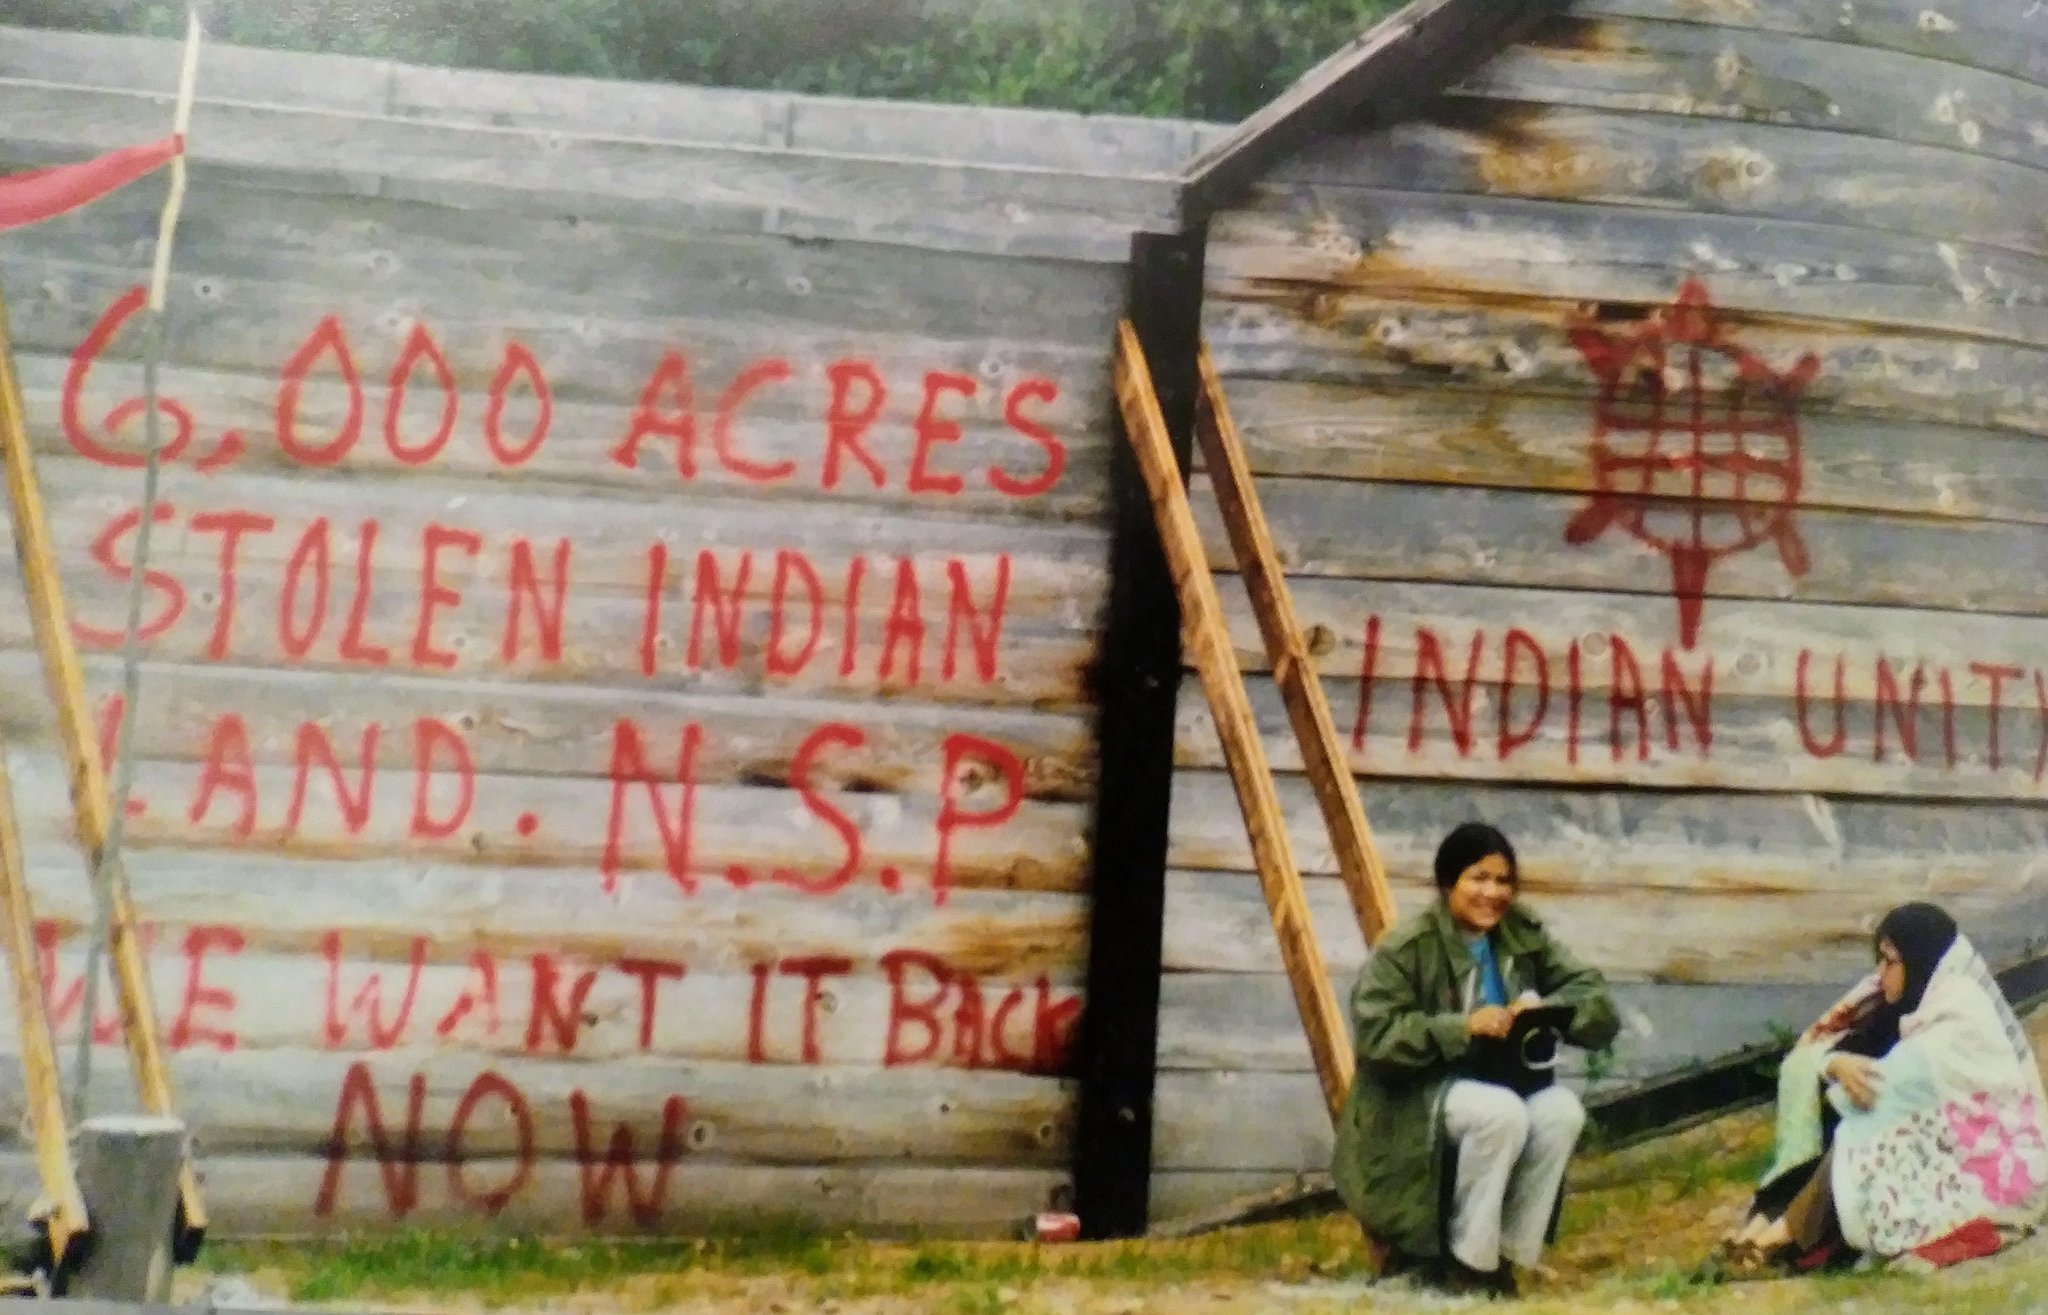 6,000 ACRES
STOLEN INDIAN
LAND. N.S.P
WE WANT IT BACK
NOW
INDIAN UNITY